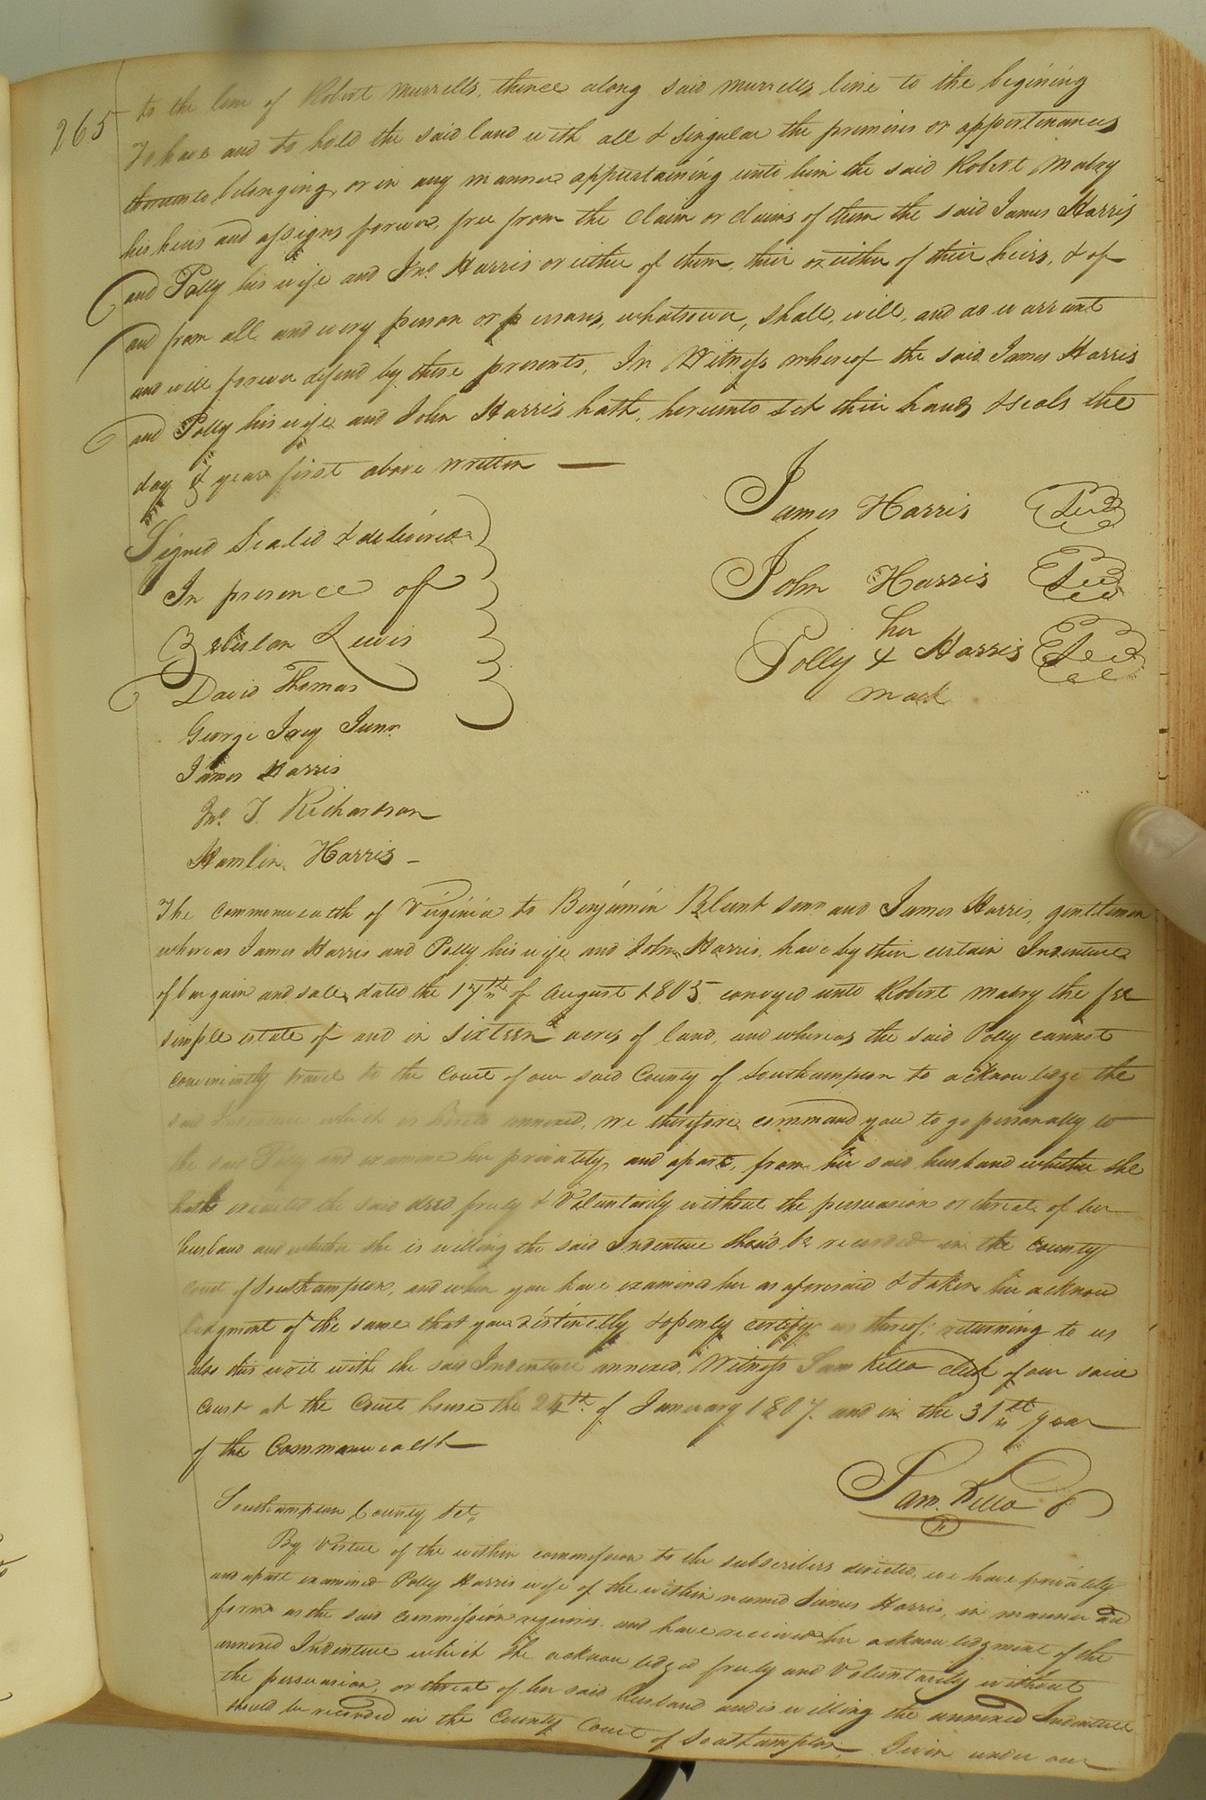 265
to the line of Robert Murrells, thence along said Murrells line to the begining
To have and to hold the said land with all & singular the premises or appertinances
thereunto belonging, or in any manner appertaining unto him the said Robert Mabry
his heirs and assigns forever, free from the claim or claims of them the said James Harris
and Polly his wife and Jno. Harris or either of them, their or either of their heirs, & of
and from all and every person or persons, whatsoever, shall, will, and do warrant
and will forever defend by these presents, In Witness whereof the said James Harris
and Polly his wife and John Harris hath, hereunto set their hands & seals the
day & year first above written —
James Harris
John Harris
her
Polly x Harris
mark
Signed Sealed & delivered
In presence of
Lewis
David Thomas
George Ivey Junr.
James Harris
Jno. T. Richardson
Hamlin Harris -
The commonwealth of Virginia to Benjamin Blunt senr and James Harris, gentlemen
whereas James Harris and Polly his wife and John Harris, have by their certain Indenture
of bargain and sale, dated the 17th of August 1805 convyed unto Robert Mabry the fee
simple estate of and in sixteen acres of land, and whereas the said Polly cannot
conveniently travel to the Court of our said County of Southampton to acknowledge the
said Indenture which is hereto annexed, we therefore command you to go personally to
the said Polly and examine her privately, and apart, from her said husband whether she
hath executed the said deed freely & Voluntarily without the persuasion or threats of her
husband and whether she is willing the said Indenture should be recorded in the county
Court of Southampton, and when you have examined her as aforesaid & taken her acknow
ledgment of the same that you distinctly & openly certify us thereof; returning to us
also this writ with the said Indenture annexed, Witness Sam Kello clerk of our said
Court at the Court house the 24th. of January 1807. and in the 31st year
of the Commonwealth
Sam. Kello
Southampton County Sct,,
By Virtue of the within commission to the subscribers directed, we have privately
and apart examined Polly Harris wife of the within named James Harris, in manner and
form as the said commission requires. and have received her acknowledgment of the
annexed Indenture which She acknowledged freely and Voluntarily without
the persuasion, or threat of her said husband and is willing the annexed Indenture
should be recorded in the County Court of Southampton. Given under our